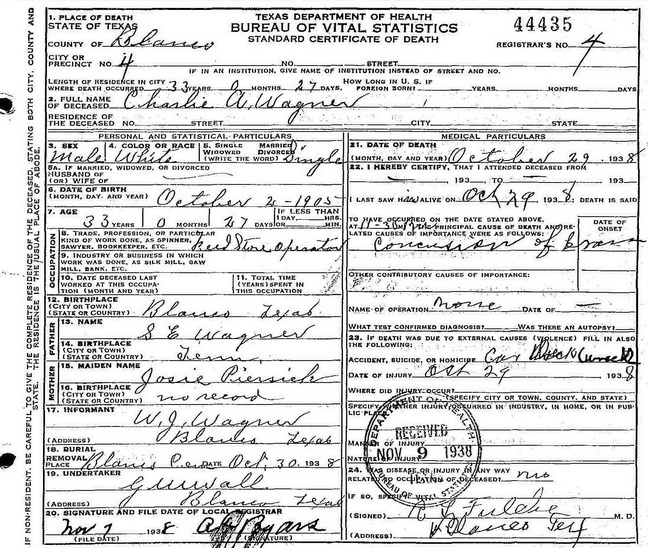 TEXAS DEPARTMENT OF HEALTH
BUREAU OF VITAL STATISTICS
STANDARD CERTIFICATE OF DEATH
44435
REGISTRAR'S NO. 4
1. PLACE OF DEATH
STATE OF TEXAS
COUNTY OF Blanco
CITY OR
PRECINCT NO. 4 NO. STREET
IF IN AN INSTITUTION, GIVE NAME OF INSTITUTION INSTEAD OF STREET AND NO.
LENGTH OF RESIDENCE IN CITY
WHERE DEATH OCCURRED 33 YEARS 0 MONTHS 27 DAYS HOW LONG IN U. S. IF FOREIGN BORN? YEARS MONTHS DAYS
2. FULL NAME
OF DECEASED Charlie A. Wagner
RESIDENCE OF
THE DECEASED NO. STREET CITY STATE
PERSONAL AND STATISTICAL PARTICULARS
3. SEX 4. COLOR OR RACE 5. SINGLE MARRIED WIDOWED DIVORCED (WRITE THE WORD)
Male White Single
5A. IF MARRIED, WIDOWED, OR DIVORCED
HUSBAND OF
(OR) WIFE OF
6. DATE OF BIRTH
(MONTH, DAY, AND YEAR) October 2 - 1905
7. AGE IF LESS THAN
33 YEARS 0 MONTHS 27 DAYS HRS. MIN.
OCCUPATION
8. TRADE, PROFESSION, OR PARTICULAR
KIND OF WORK DONE, AS SPINNER,
SAWYER, BOOKKEEPER, ETC. Feed Store Operator
9. INDUSTRY OR BUSINESS IN WHICH
WORK WAS DONE, AS SILK MILL, SAW
MILL, BANK, ETC.
10. DATE DECEASED LAST
WORKED AT THIS OCCUPA-
TION (MONTH AND YEAR)
11. TOTAL TIME
(YEARS) SPENT IN
THIS OCCUPATION
12. BIRTHPLACE
(CITY OR TOWN)
(STATE OR COUNTRY) Blanco Texas
FATHER
13. NAME S E Wagner
14. BIRTHPLACE
(CITY OR TOWN)
(STATE OR COUNTRY) Tenn.
MOTHER
15. MAIDEN NAME Josie
16. BIRTHPLACE
(CITY OR TOWN)
(STATE OR COUNTRY) no record
17. INFORMANT W. J. Wagner
(ADDRESS) Blanco Texas
18. BURIAL
REMOVAL
PLACE Blanco Cem DATE Oct, 30. 1938
19. UNDERTAKER
(ADDRESS) Blanco Texas
20. SIGNATURE AND FILE DATE OF LOCAL REGISTRAR
Nov 7 1938 Byars
(FILE DATE) (SIGNATURE)
MEDICAL PARTICULARS
21. DATE OF DEATH
(MONTH, DAY AND YEAR) October 29, 1938
22. I HEREBY CERTIFY, THAT I ATTENDED DECEASED FROM
193 TO 193
I LAST SAW H ALIVE ON Oct 29 1938, DEATH IS SAID
TO HAVE OCCURRED ON THE DATE STATED ABOVE.
PRINCIPAL CAUSE OF DEATH AND RE-
LATED CAUSES OF IMPORTANCE WERE AS FOLLOWS:
DATE OF
ONSET
Concussion of brain
OTHER CONTRIBUTORY CAUSES OF IMPORTANCE:
NAME OF OPERATION none DATE OF —
WHAT TEST CONFIRMED DIAGNOSIS? WAS THERE AN AUTOPSY?
23. IF DEATH WAS DUE TO EXTERNAL CAUSES (VIOLENCE) FILL IN ALSO
THE FOLLOWING:
ACCIDENT, SUICIDE, OR HOMICIDE Car (wreck)
DATE OF INJURY Oct 29 1938
WHERE DID INJURY OCCUR?
(SPECIFY CITY OR TOWN, COUNTY, AND STATE)
SPECIFY WHETHER INJURY OCCURRED IN INDUSTRY, IN HOME, OR IN PUB-
LIC PLACE
MANNER OF INJURY
NATURE OF INJURY
24. WAS DISEASE OR INJURY IN ANY WAY
RELATED TO OCCUPATION OF DECEASED? no
IF SO, SPECIFY
(SIGNED) M. D.
(ADDRESS) Blanco Tex
DEPARTMENT OF HEALTH
RECEIVED
NOV 9 1938
TEXAS
BUREAU OF VITAL STATISTICS
IF NON-RESIDENT, BE CAREFUL TO GIVE THE COMPLETE RESIDENCE OF THE DECEASED, STATING BOTH CITY, COUNTY AND
STATE. THE RESIDENCE IS THE USUAL PLACE OF ABODE.